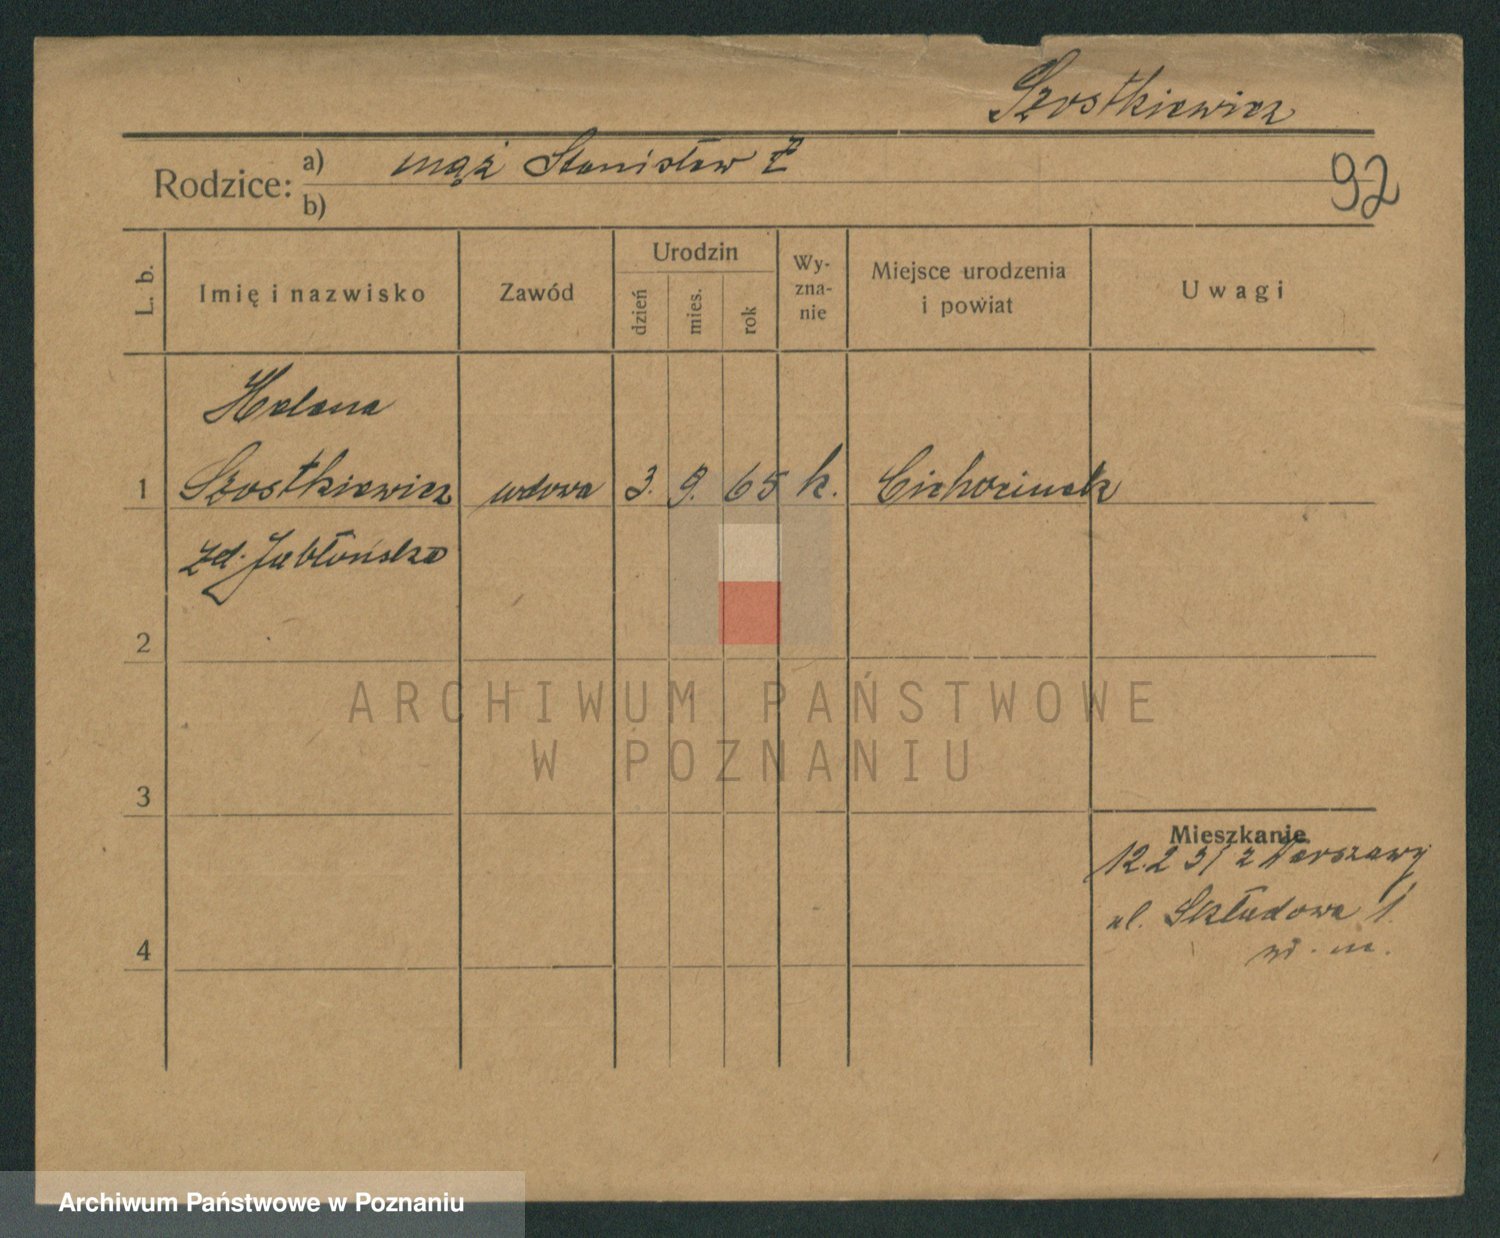 Szostkiewicz
Rodzice: a) mąż Stanisław Ż
b)
92
L. b.
Imię i nazwisko
Zawód
Urodzin
dzień
mies.
rok
Wy-
zna-
nie
Miejsce urodzenia
i powiat
Uwagi
Helena
1 Szostkiewicz wdowa 3. 9. 65 k. Ciechocinek
zd. Jabłońska
2
3
4
Mieszkanie
12.2 31 z Warszawy
ul. Składowa 1
ARCHIWUM PAŃSTWOWE
W POZNANIU
Archiwum Państwowe w Poznaniu